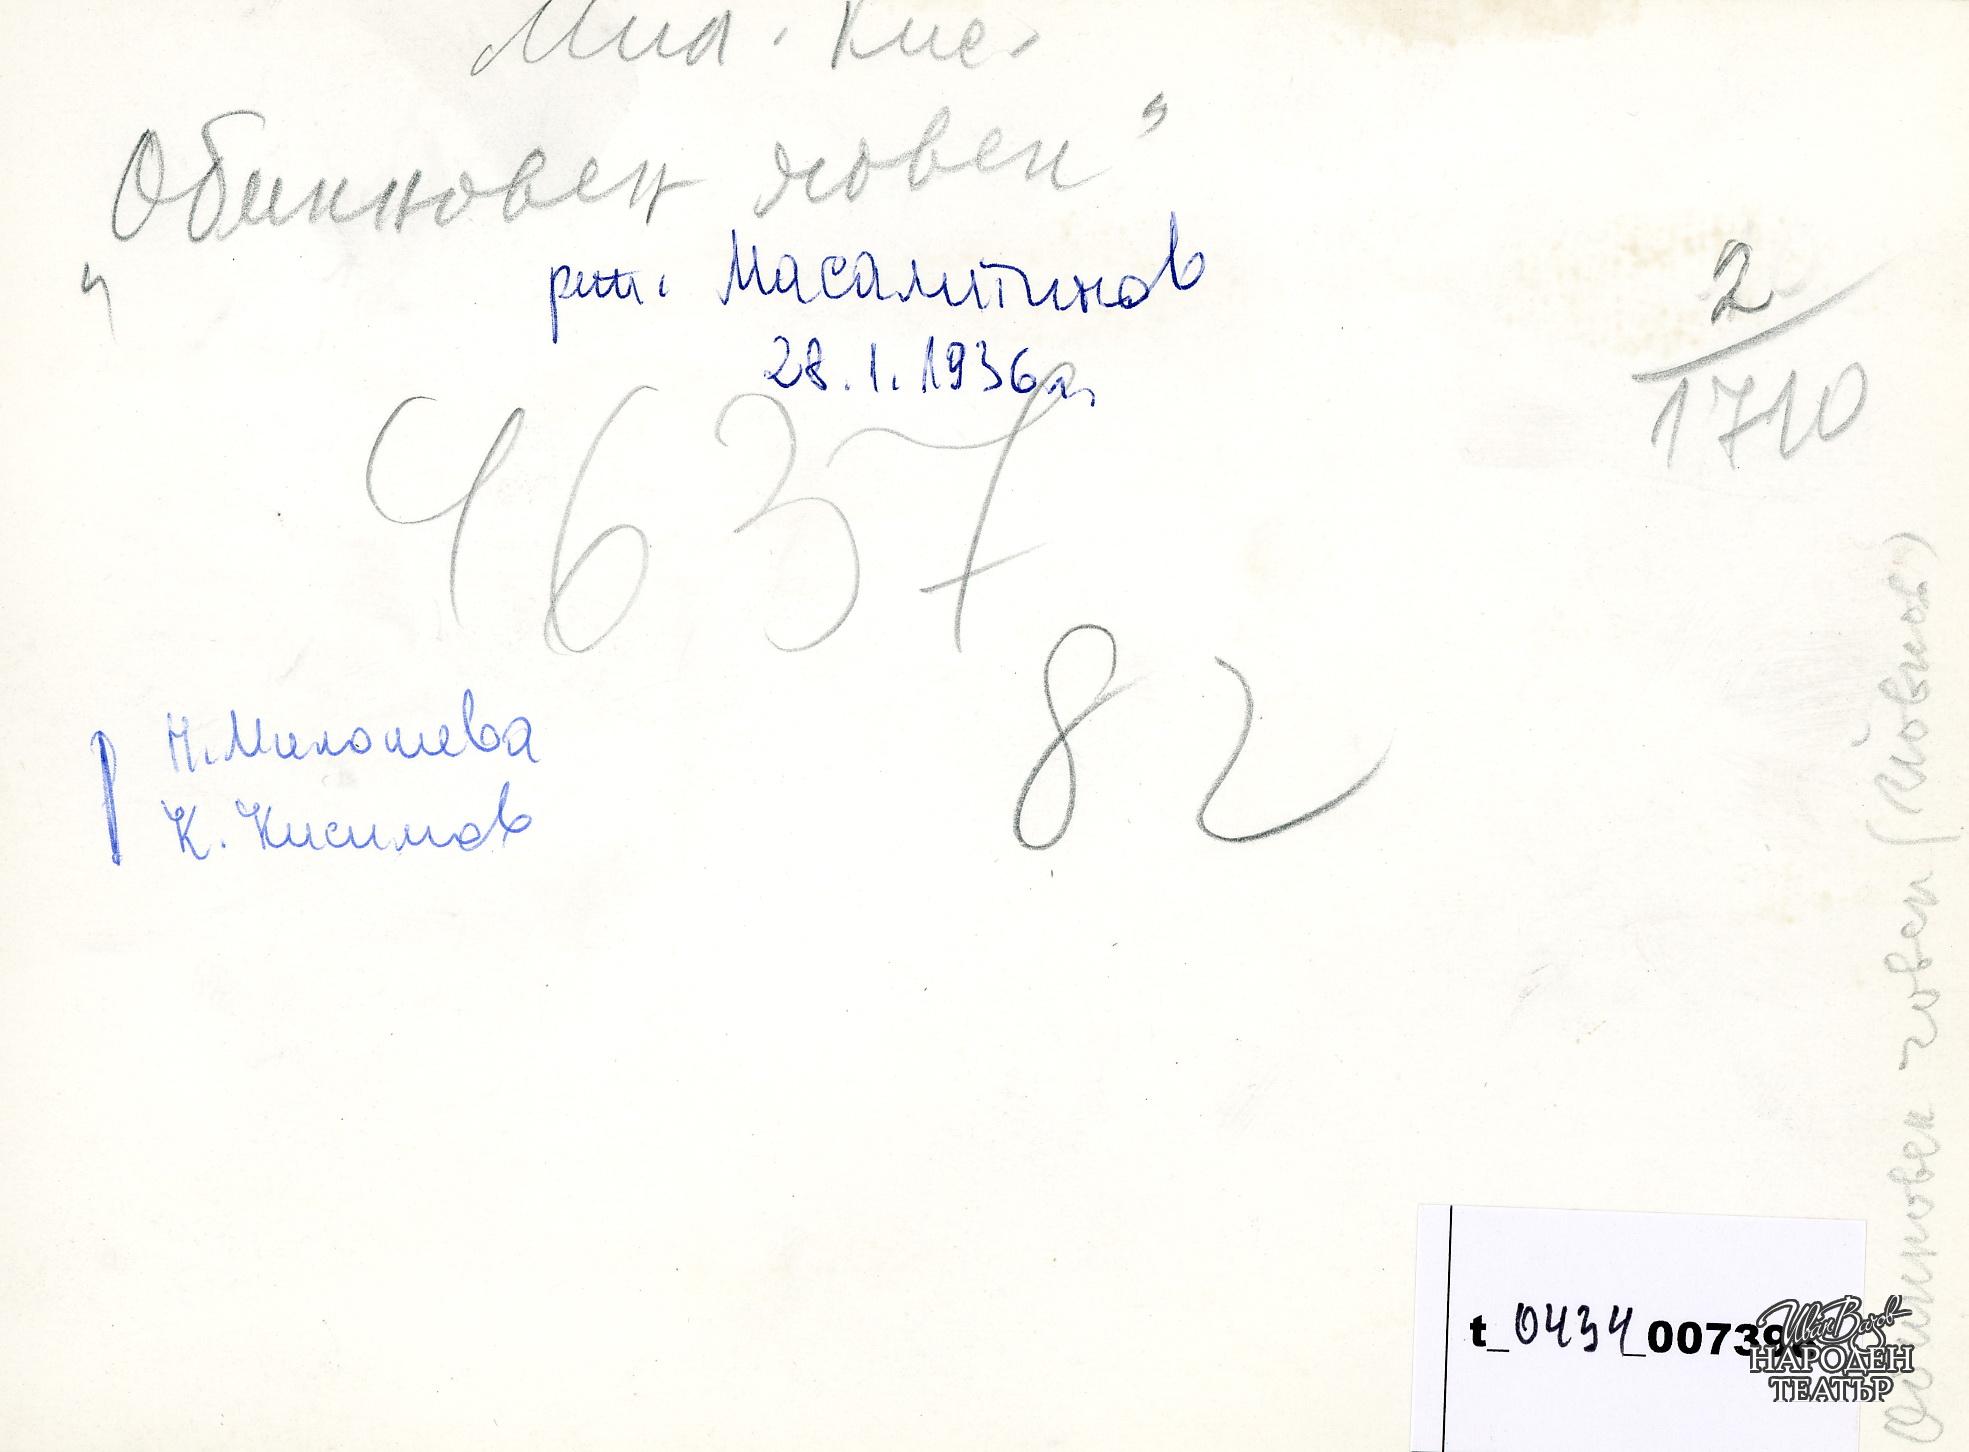 Мил. Кис.
"Обикновен човек"
реж. Масалитинов
28.I.1936г.
2
1710
4637
82
Н. Милошева
К. Кисимов
Обикновен човек (Йовков)
t_0434_00739
Иван Вазов
НАРОДЕН
ТЕАТЪР